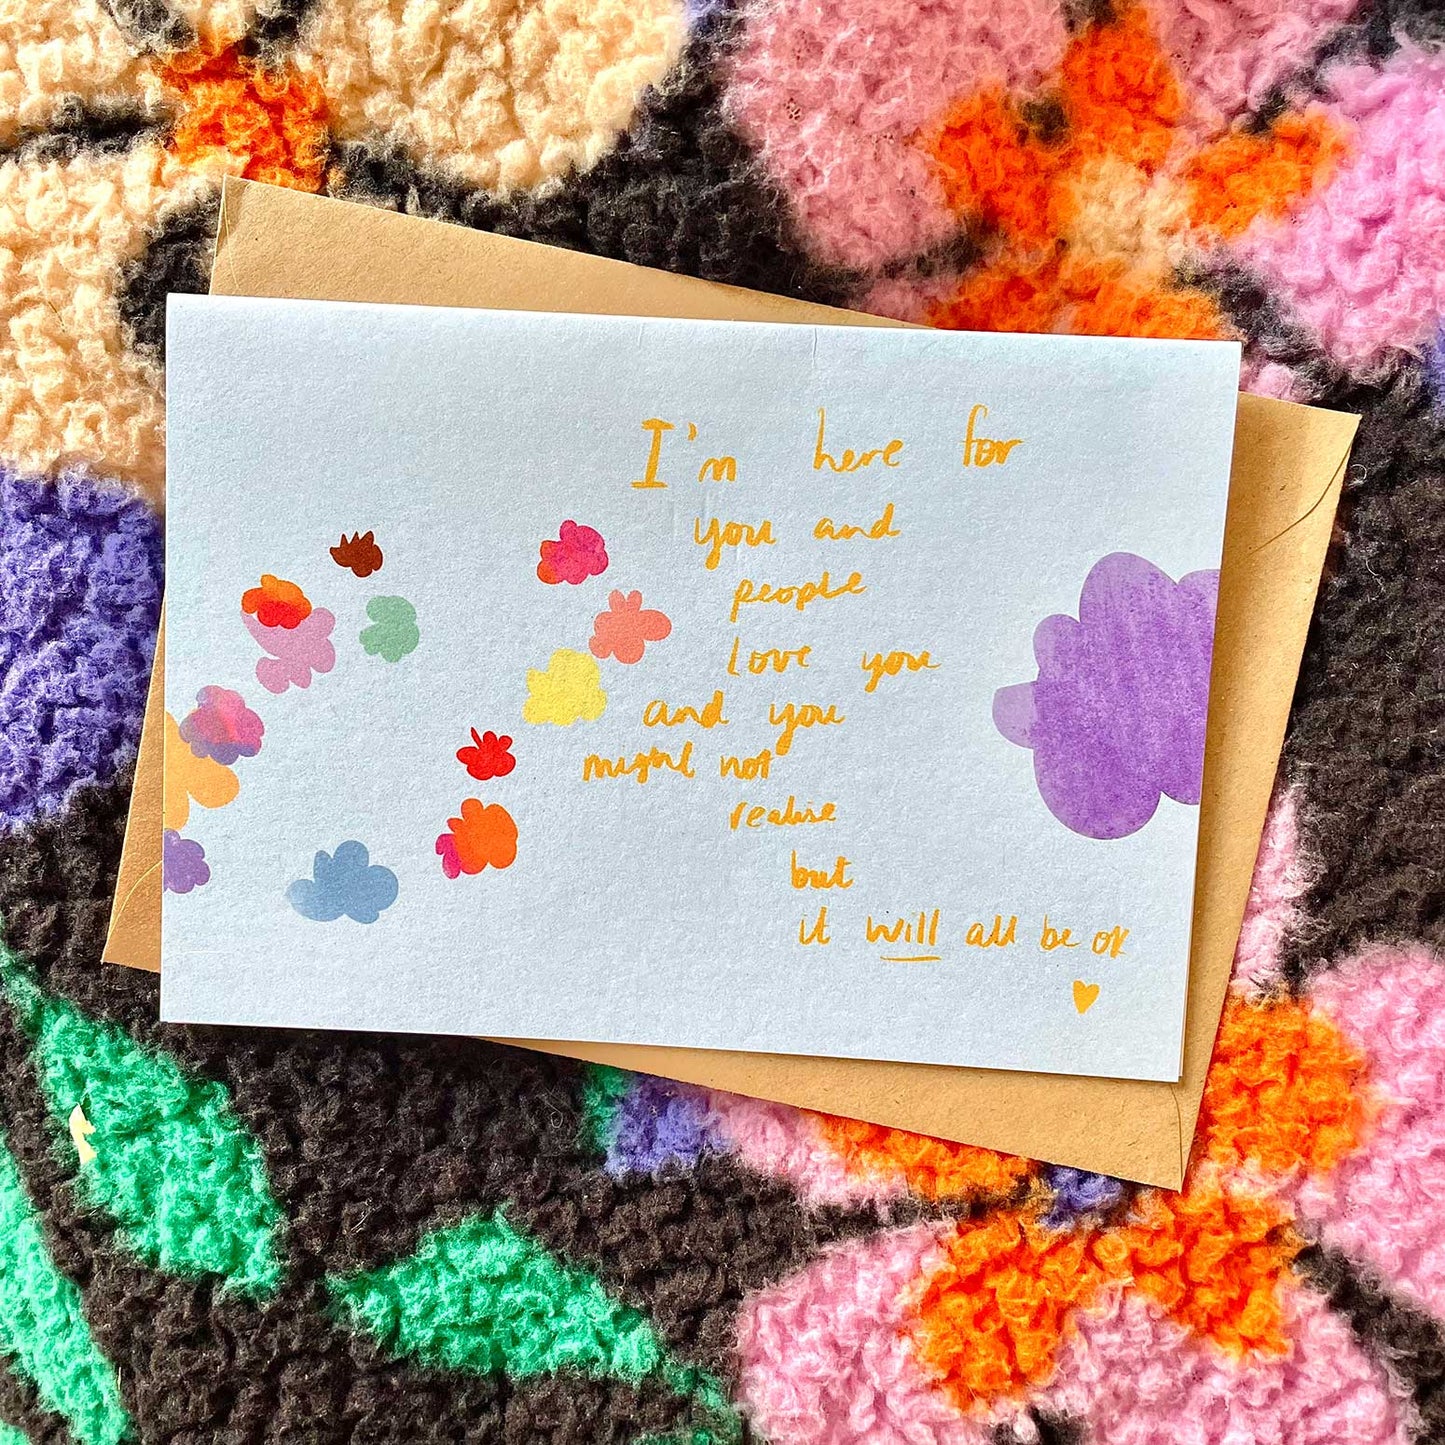 I'm here for
you and
people
love you
and you
might not
realise
but
it will all be ok